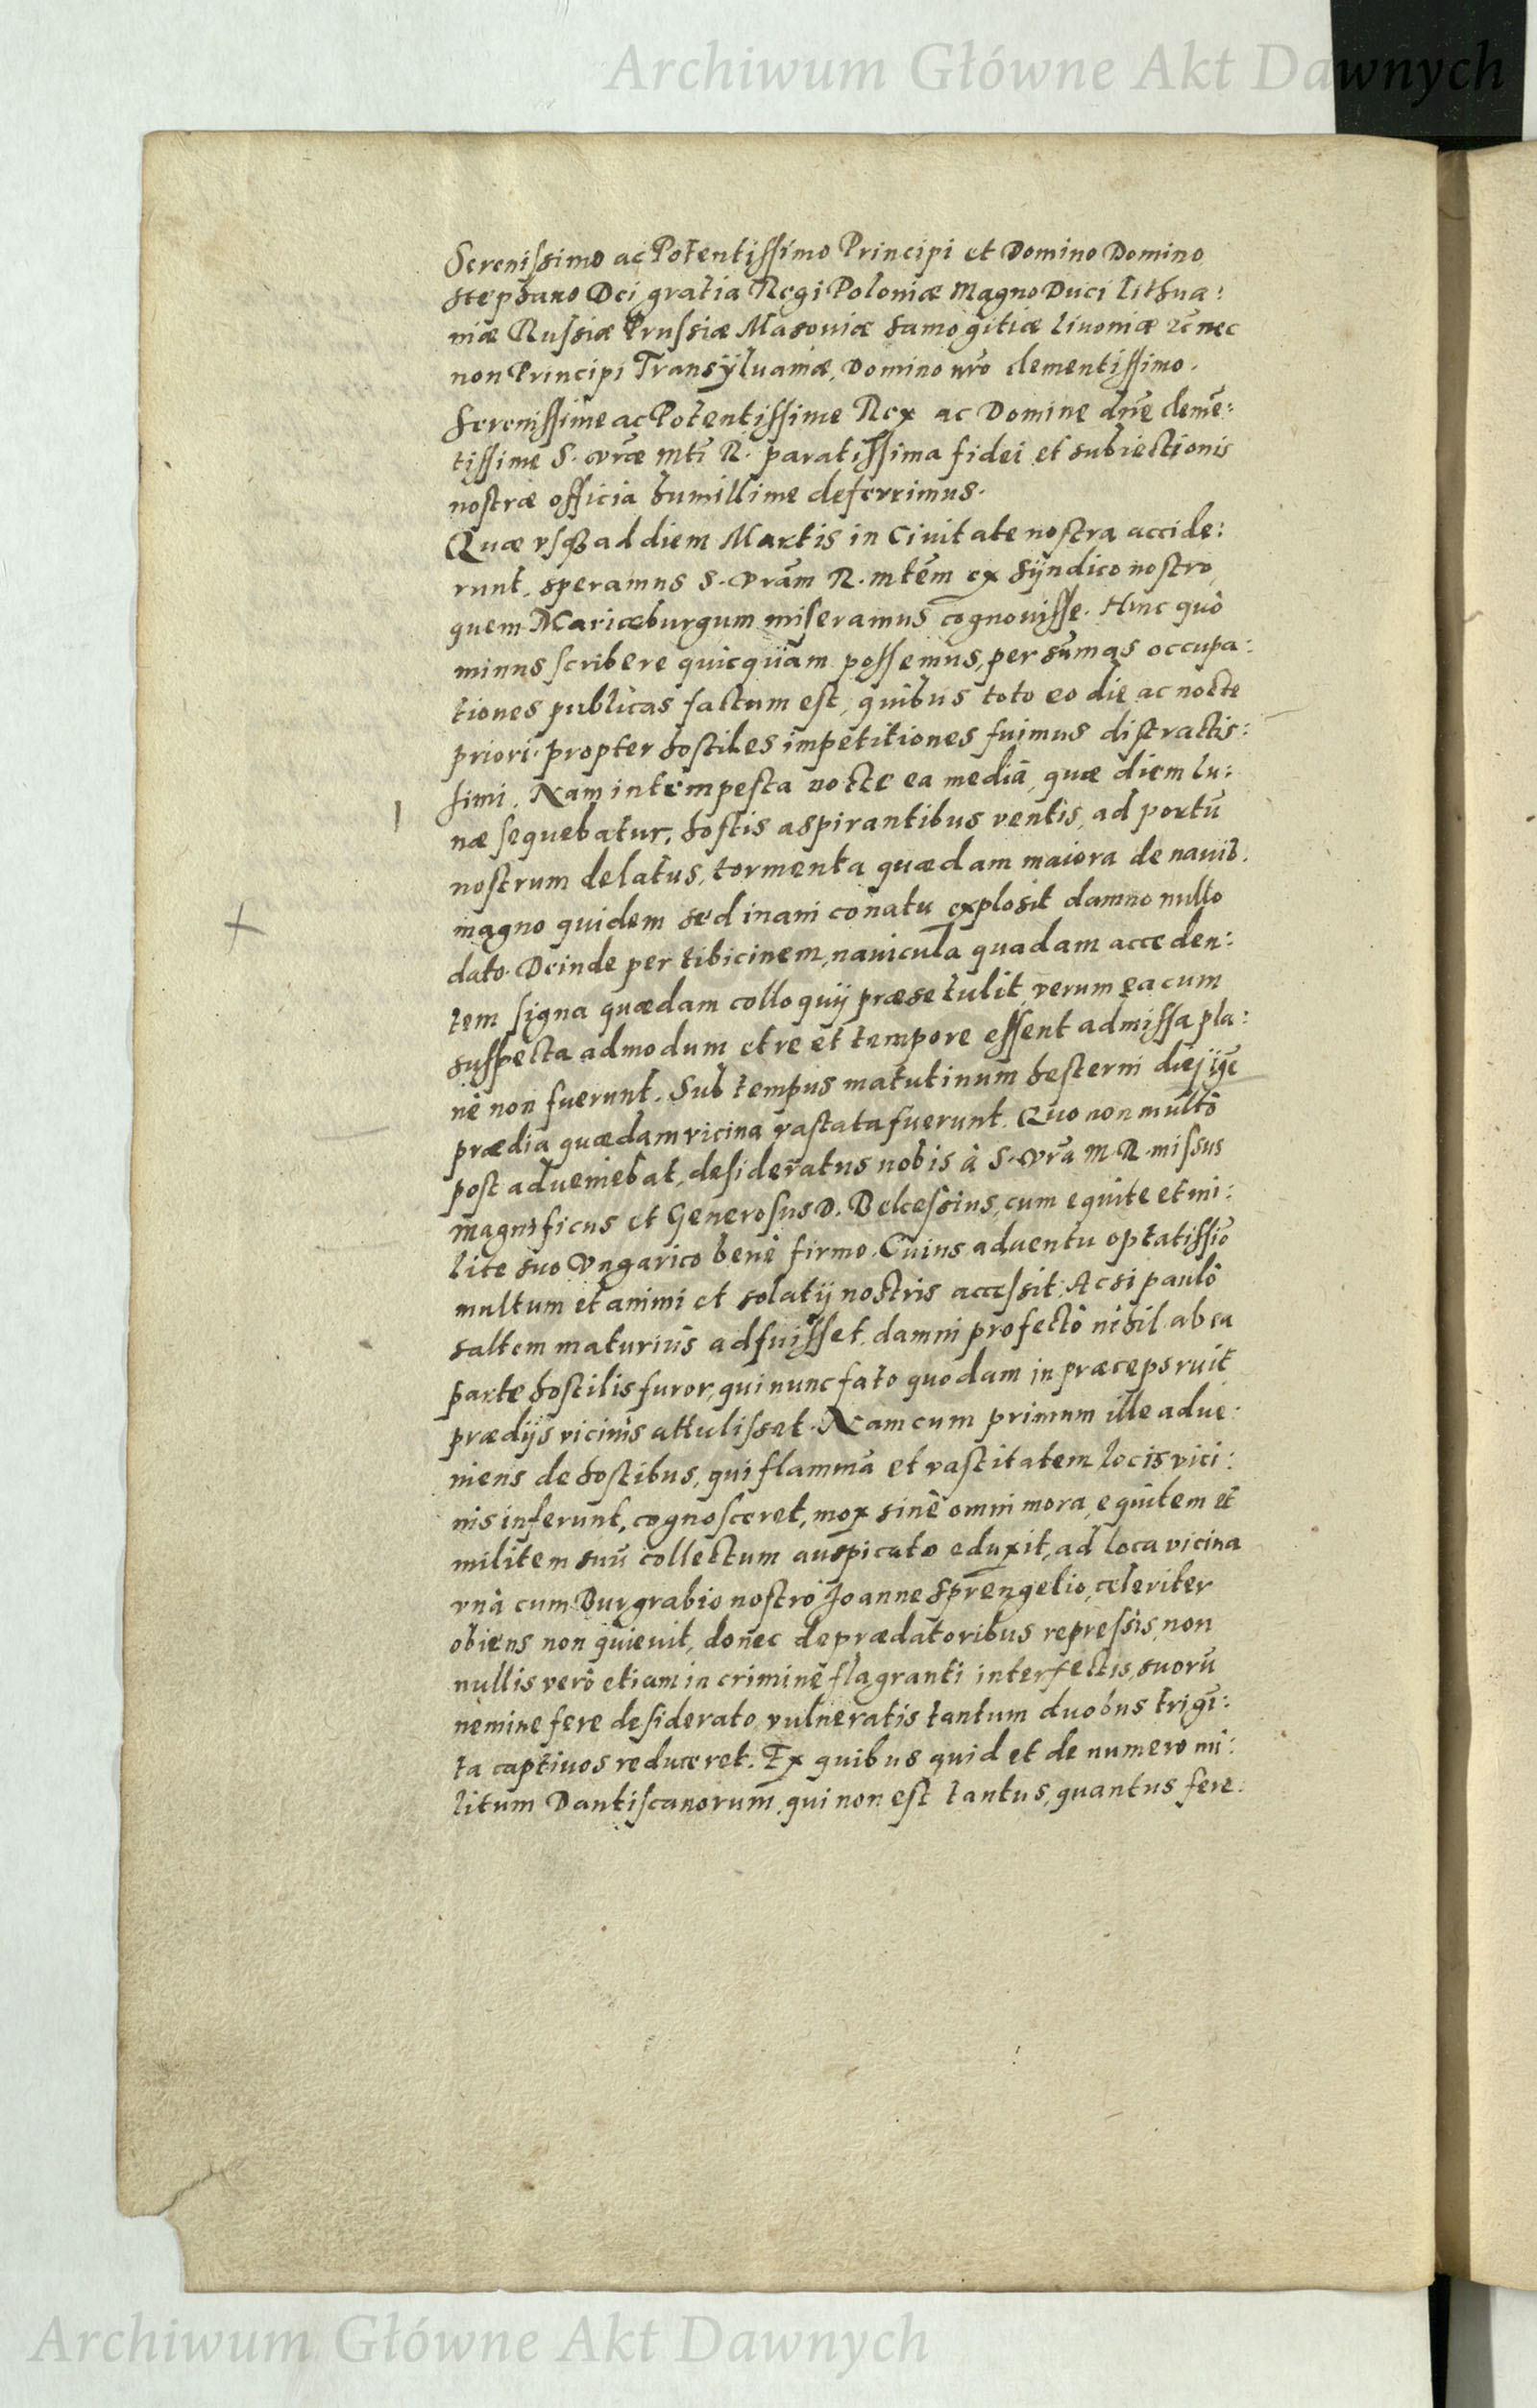 Archiwum Główne Akt Dawnych
Serenissimo ac Potentissimo Principi et Domino Domino
Stephano Dei gratia Regi Poloniæ Magno Duci Lithua:
niæ Russiæ Prussiæ Masoviæ Samogitiæ Livoniæ etc̄ nec
non Principi Transÿluaniæ, Domino nr̄o clementissimo.
Serenissime ac Potentissime Rex ac Domine dn̄e clemē:
tissime S. vr̄æ Mti R. paratissima fidei et subiectionis
nostræ officia humillime deferrimus.
Quæ vsq̨ ad diem Martis in Ciuitate nostra accide:
runt, speramus S. vrām R. mtēm ex Sÿndico nostro,
quem Mariæburgum miseramus cognouisse. Hinc quò
minus scribere quicquam possemus, per sūmas occupa:
tiones publicas factum est, quibus toto eo die ac nocte
priori propter hostiles impetitiones fuimus distractis:
simi. Nam intempesta nocte ea mediā, quæ diem lu:
næ sequebatur, hostis aspirantibus ventis, ad portū
nostrum delatus, tormenta quædam maiora de nauib.
magno quidem sed inani conatu explosit damno nullo
dato. Deinde per tibicinem, nauicula quadam acceden:
tem signa quædam colloquij præse tulit, verum ea cum
suspecta admodum et re et tempore essent admissa pla:
nè non fuerunt. Sub tempus matutinum hesterni diej igē
prædia quædam vicina vastata fuerunt. Quo non multò
post adueniebat, desideratus nobis à S. vrā M. R. missus
magnificus et Generosus D. Belcessius, cum equite et mi:
lite suo Vngarico benè firmo. Cuius aduentu optatissīo
multum et animi et solatij nostris accessit. Ac si paulò
saltem maturiùs adfuisset, damni profectò nihil ab ea
parte hostilis furor, qui nunc fato quodam in præceps ruit
prædijs vicinis attulisset. Nam cum primum ille adue:
niens de hostibus, qui flammā et vastitatem locis vici:
nis inferunt, cognosceret, mox sinè omni mora, equitem et
militem suū collectum auspicato eduxit, ad loca vicina
vnà cum Burgrabio nostro Joanne Sprengelio, celeriter
obiens non quieuit, donec deprædatoribus repressis, non
nullis verò etiam in criminè flagranti interfectis, suorū
nemine fere desiderato, vulneratis tantum duobus trigī:
ta captiuos reduceret. Ex quibus quid et de numero mi:
litum Dantiscanorum, qui non est tantus, quantus fere.
Archiwum Główne Akt Dawnych